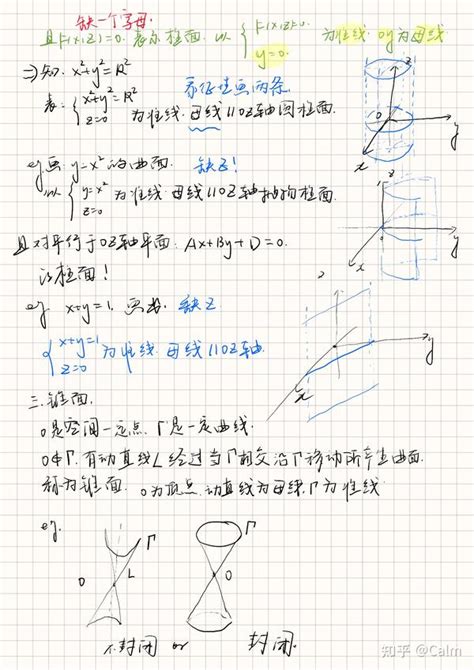 缺一个字母.
且F(x,z)=0. 表示柱面. 以 { F(x,z)=0. y=0. 为准线. oy为母线
⇒知: x²+y²=R²
表: { x²+y²=R² z=0 为准线. 母线//OZ轴圆柱面.
画两条
eg画: y=x² 的曲面. 缺Z!
以 { y=x² z=0 为准线 母线//OZ轴抛物柱面.
且对平行于OZ轴平面: Ax+By+D=0.
以柱面!
eg x+y=1. 缺Z
{ x+y=1 z=0 为准线. 母线//OZ轴.
三. 锥面.
o是空间一定点. Γ是一定曲线.
o∉Γ. 有动直线L经过与Γ相交沿Γ移动所产生曲面.
称为锥面. o为顶点. 动直线为母线. Γ为准线
eg.
Γ
O
L
Γ
O
不封闭 or 封闭.
z
o
y
x
z
o
y
x
z
y
x
知乎 @Calm